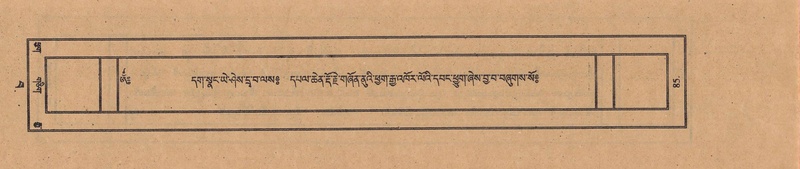 དག་སྣང་ཡེ་ཤེས་དྲྭ་བ་ལས༔ དཔལ་ཆེན་རྡོ་རྗེ་གཞོན་ནུའི་ཕྱག་རྒྱ་འཁོར་ལོའི་དབང་ཕྱུག་ཞེས་བྱ་བ་བཞུགས་སོ༔
གཅིག
85